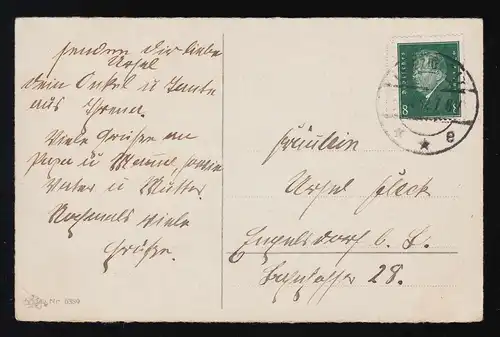 senden dir liebe
Ursel
dein Onkel u Tante
aus
Viele Grüße an
Papa u Mama, sowie
Vater u Mutter.
Nochmals viele
Grüße.
Nr
8
8
e
Fräulein
Ursel Fleck
Engelsdorf b. L.
28.